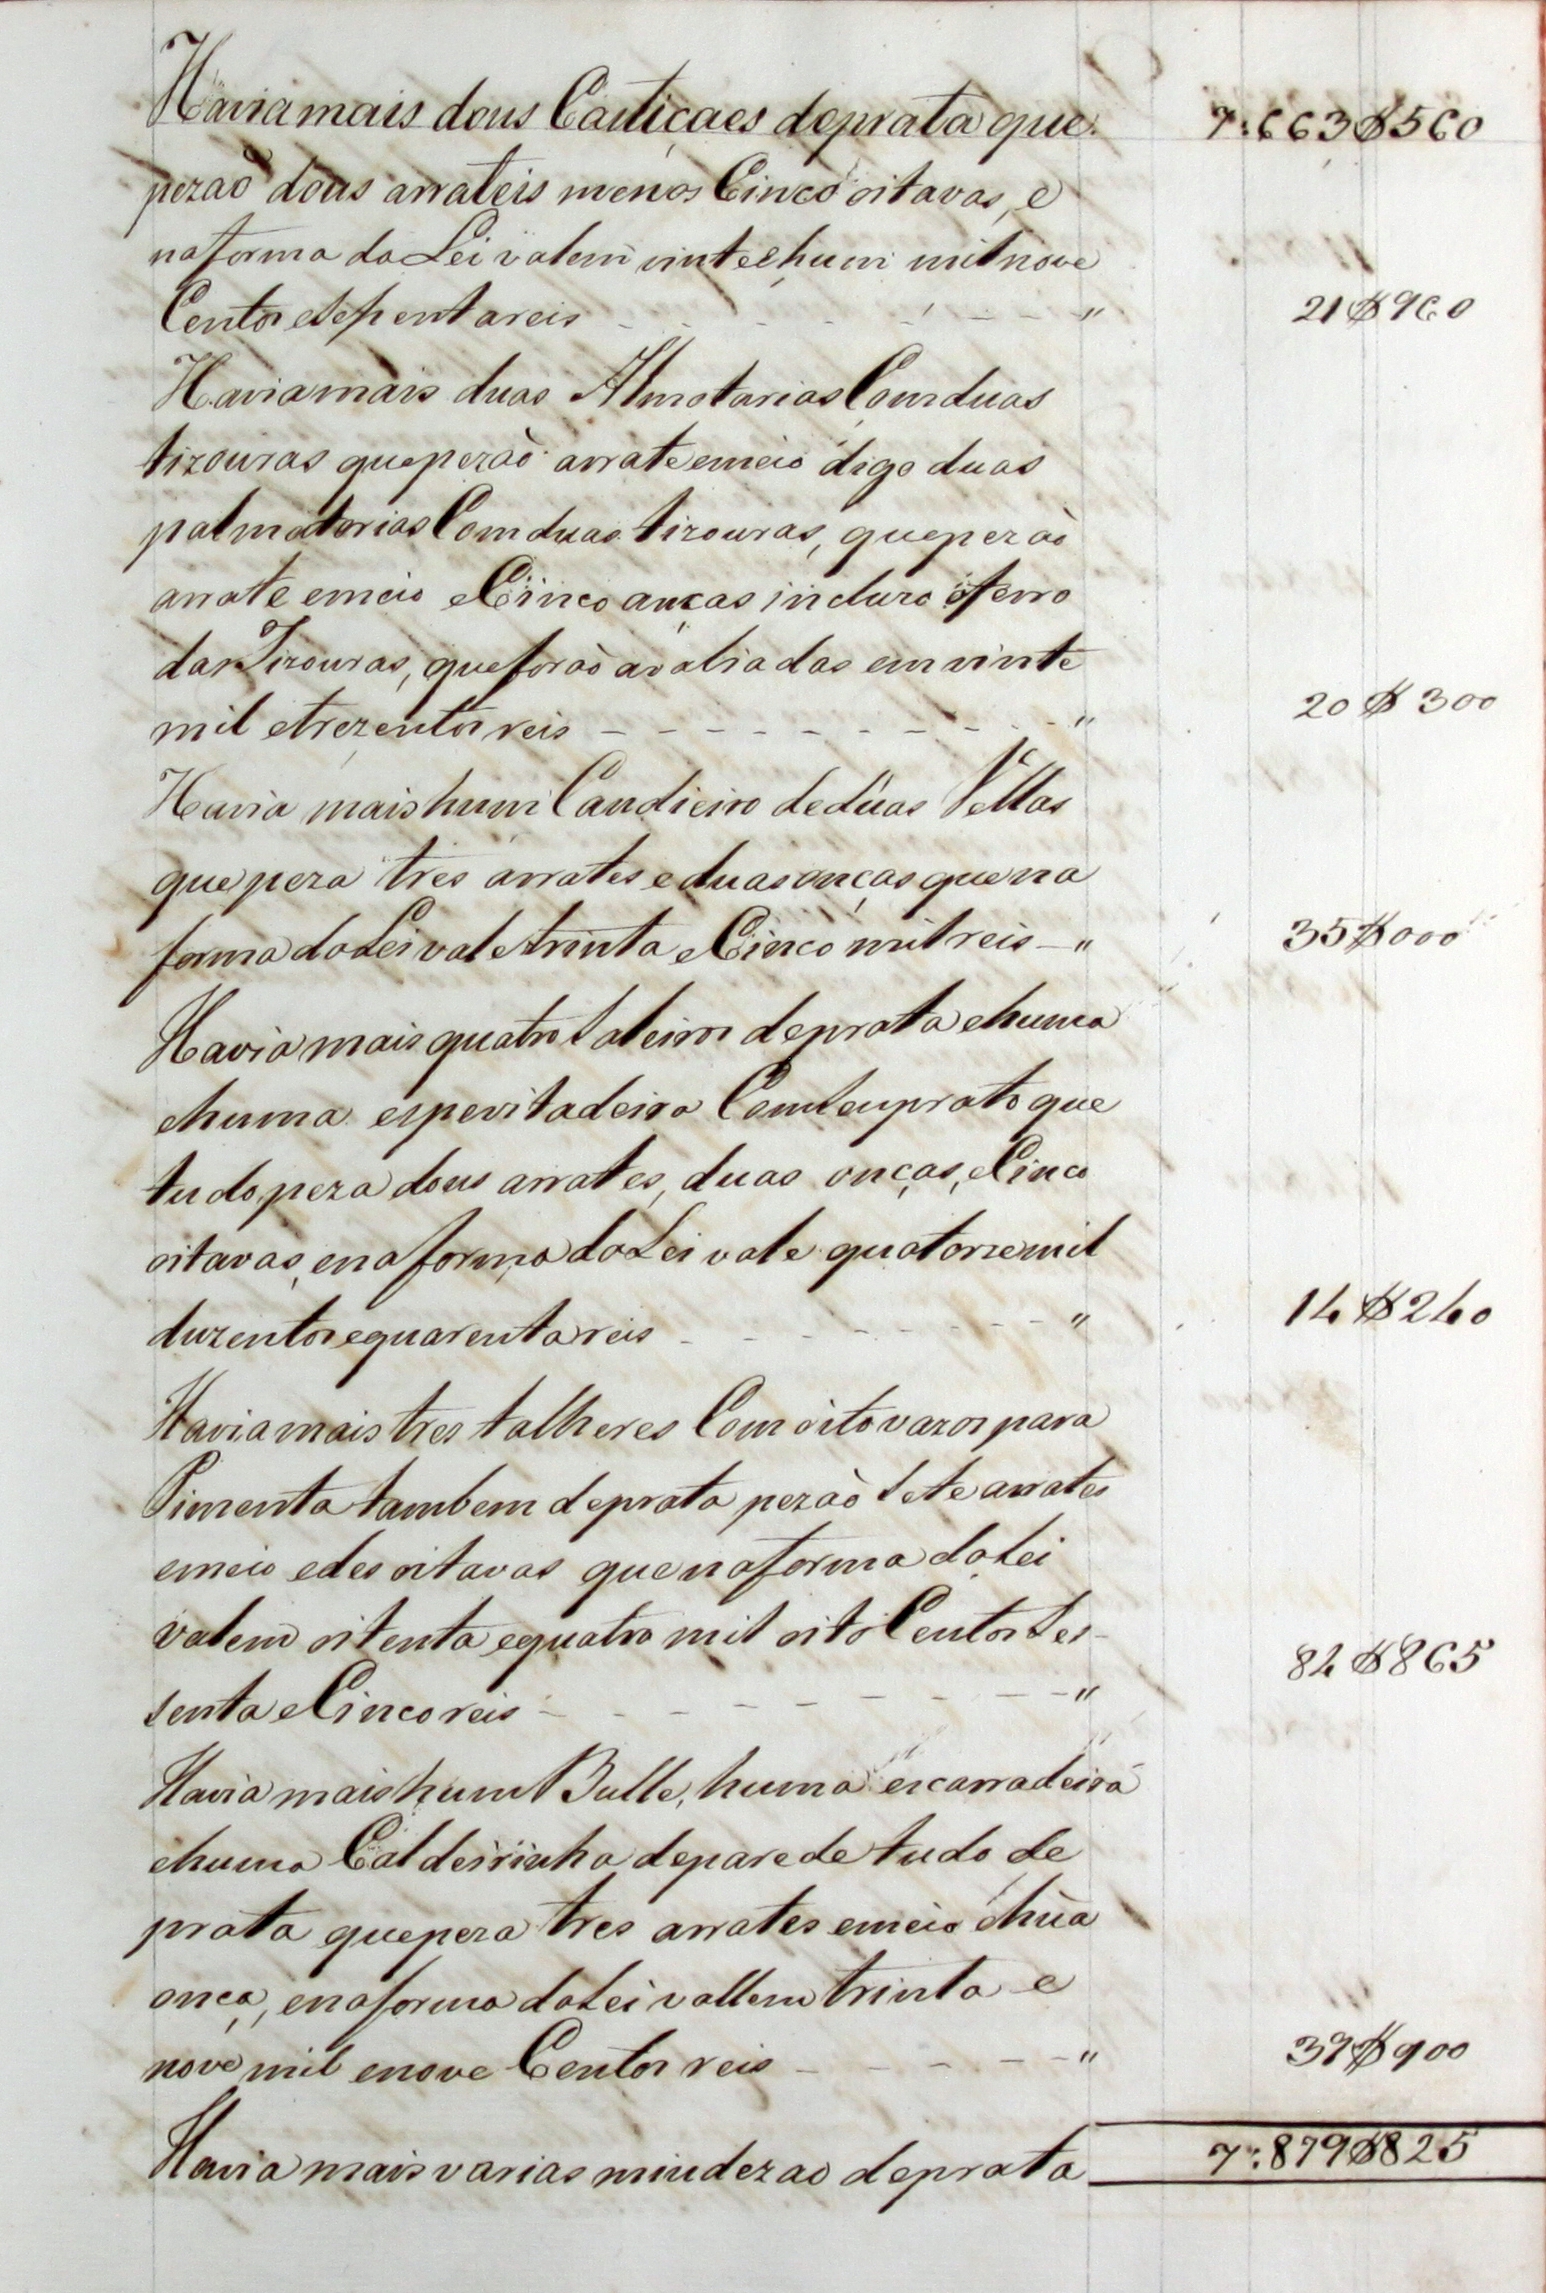 Havia mais dous Castiçaes de prata que 7:663$560
pezaõ dous arrateis menos Cinco oitavas, e
na forma da Lei valem vinte e hum mil nove
Centos e Sepentareis - - - - - - - - " 21$960
Havia mais duas Almotarias Com duas
tizouras que pezaò arrate e meio digo duas
palmatorias Com duas tizouras, que pezaò
arrate e meio e Cinco onças incluzo o ferro
das Tizouras, que foraò avaliadas em vinte
mil e trezentos reis - - - - - - - - - " 20$300
Havia mais hum Candieiro de duas Vellas
que peza tres arrates e duas onças que na
forma da Lei vale trinta e Cinco mil reis - " 35$000
Havia mais quatro Saleiros de prata e huma
e huma espevitadeira Com Seu prato que
tudo peza dous arrates, duas onças, e Cinco
oitavas, e na forma da Lei vale quatorze mil
duzentos e quarenta reis - - - - - - - " 14$240
Havia mais tres talheres Com oito vazos para
Pimenta tambem de prata pezaò Sete arrates
e meio e des oitavas que na forma da Lei
valem oitenta e quatro mil oito Centos Ses- 84$865
senta e Cinco reis - - - - - - - - "
Havia mais hum Bulle, huma escarradeira
e huma Caldeirinha de parede tudo de
prata que peza tres arrates e meio e hùa
onça, e na forma da Lei vallem trinta e
nove mil e nove Centos reis - - - - - " 39$900
Havia mais varias miudezas de prata 7:879$825